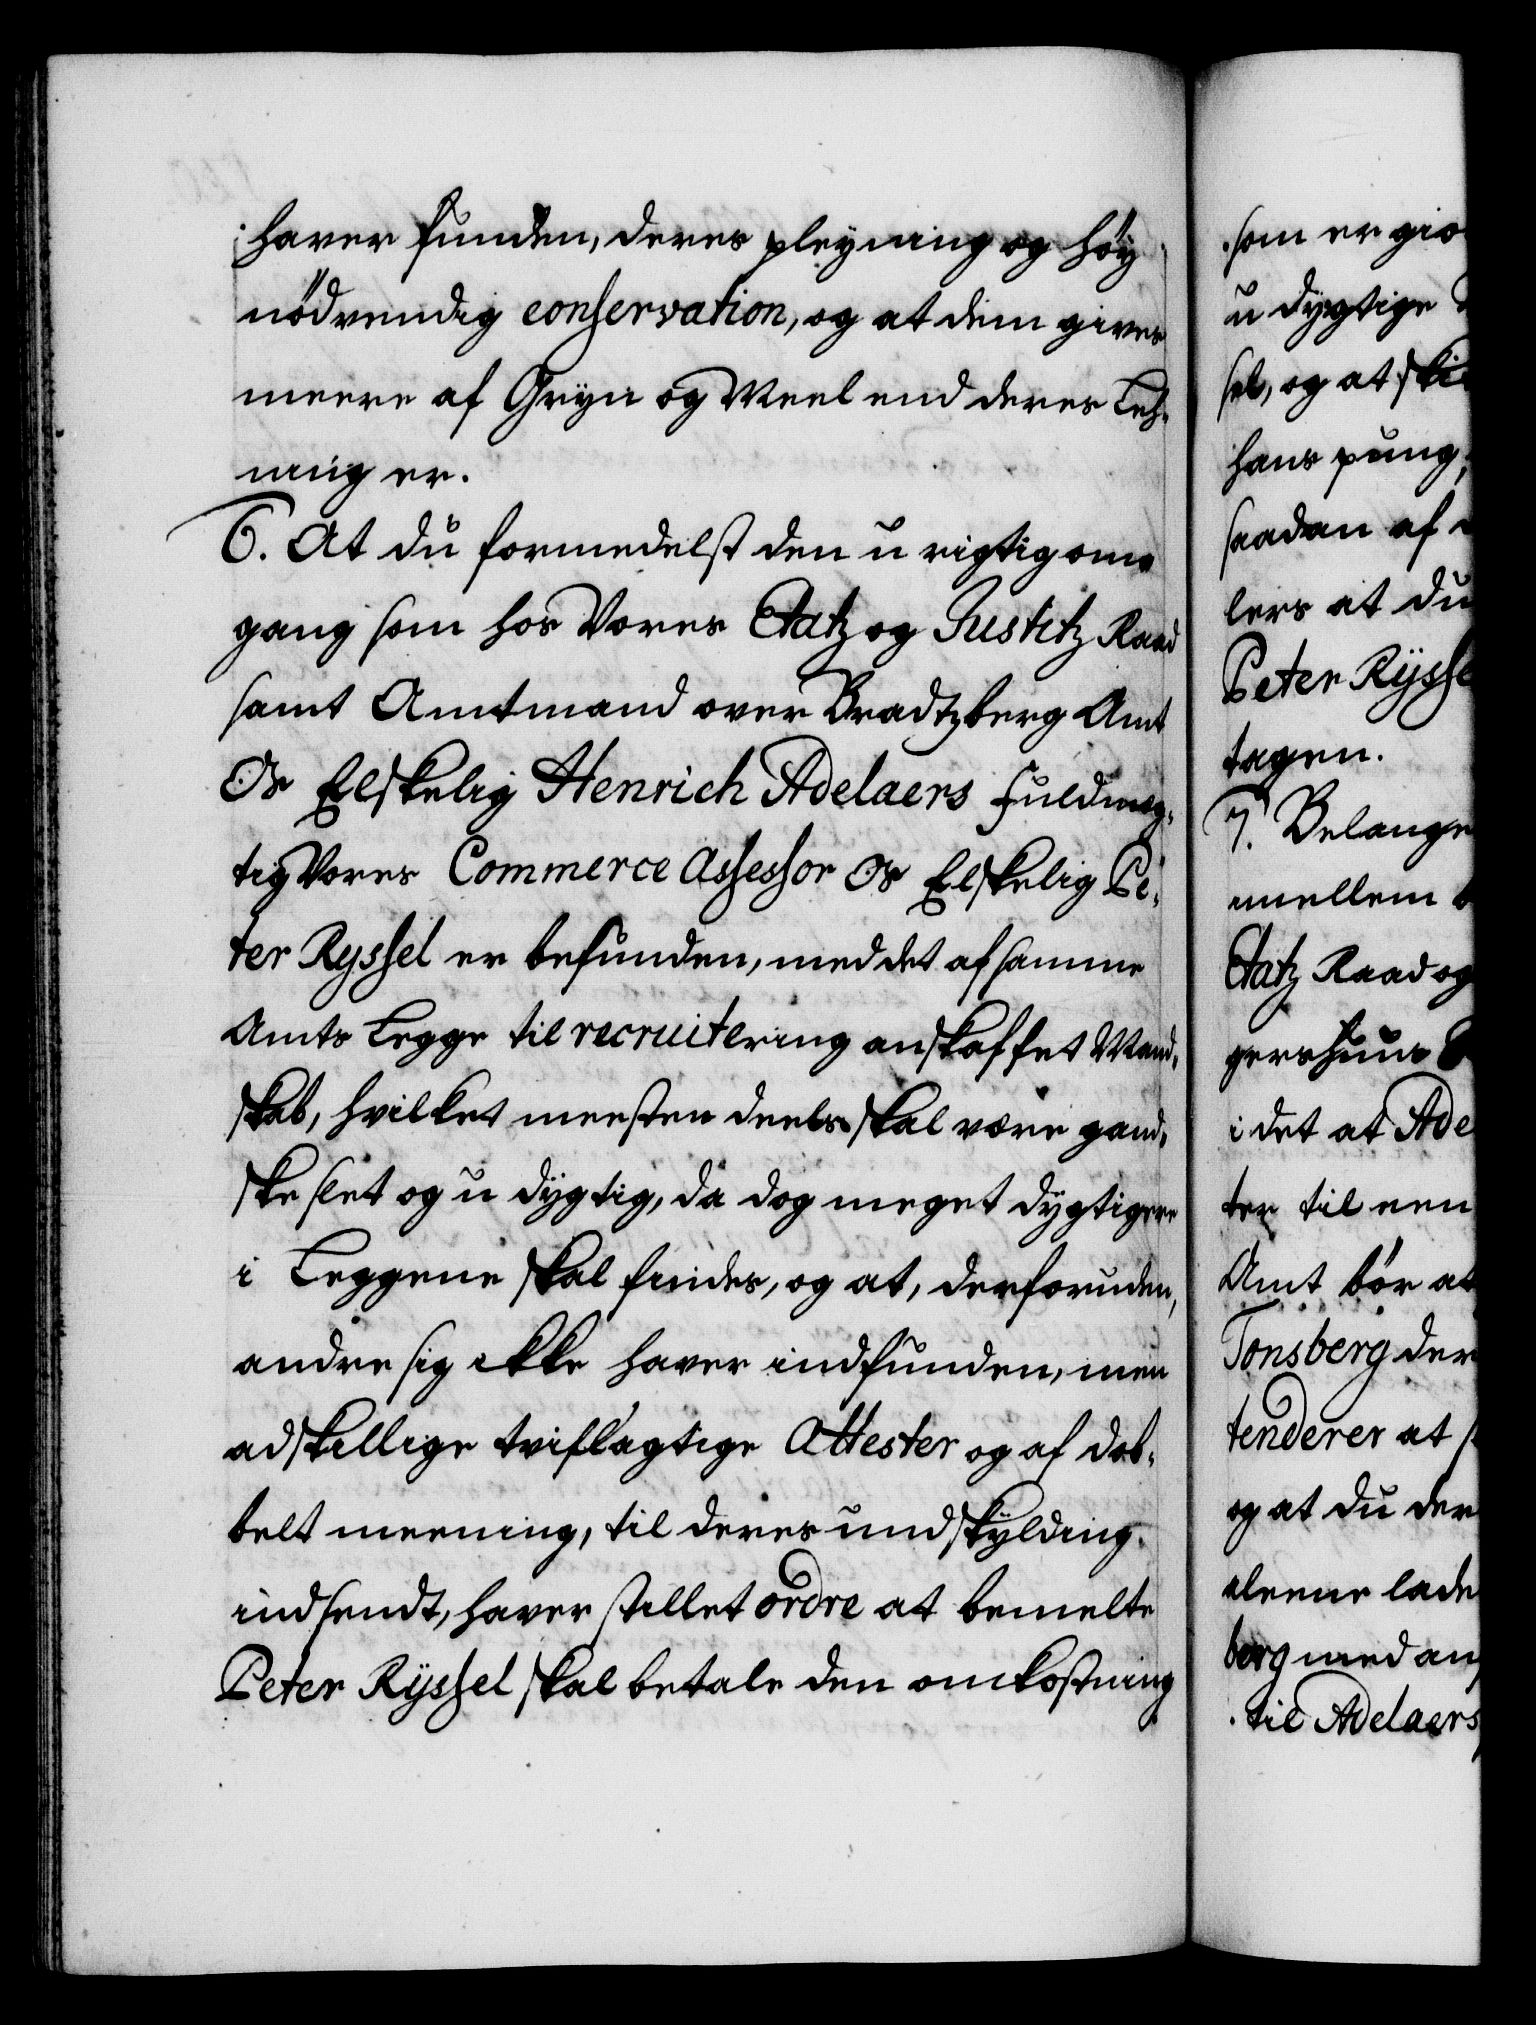 haver funden, deres pleyning og höy
nödvendig conservation, og at dem gives
meere af Gryn og Meel end deres Leh-
ning er.
6. At du formedelst den u rigtig om-
gang som hos Vores Etatz og Justitz Raad
samt Amtmand over Bradtzberg Amt
Os Elskelig Henrich Adelaers Fuldmeg-
tig Vores Commerce Assessor Os Elskelig Pe-
ter Ryssel er befunden, med det af samme
Amts Legge til recruitering anskaffet Mand-
skab, hvilket meesten deels skal være gand-
ske slet og u dygtig, da dog meget dygtigere
i Leggene skal findes, og at, derforuden,
andre sig ikke haver indfunden, men
adskillige tviflagtige Attester og af dob-
belt meening, til deres undskylding
indsendt, haver stillet ordre at bemelte
Peter Ryssel skal betale den omkostning
som er gio
u dygtige
sel, og at ski
hans pung,
saadan af
lers at du
Peter Rysse
tagen.
7. Belange
mellem
Etatz Raad og
gershuus
i det at Ade
ter til een
Amt bör at
Tonsberg der
tenderer at
og at du der
aleene lade
berg med an
til Adelaers